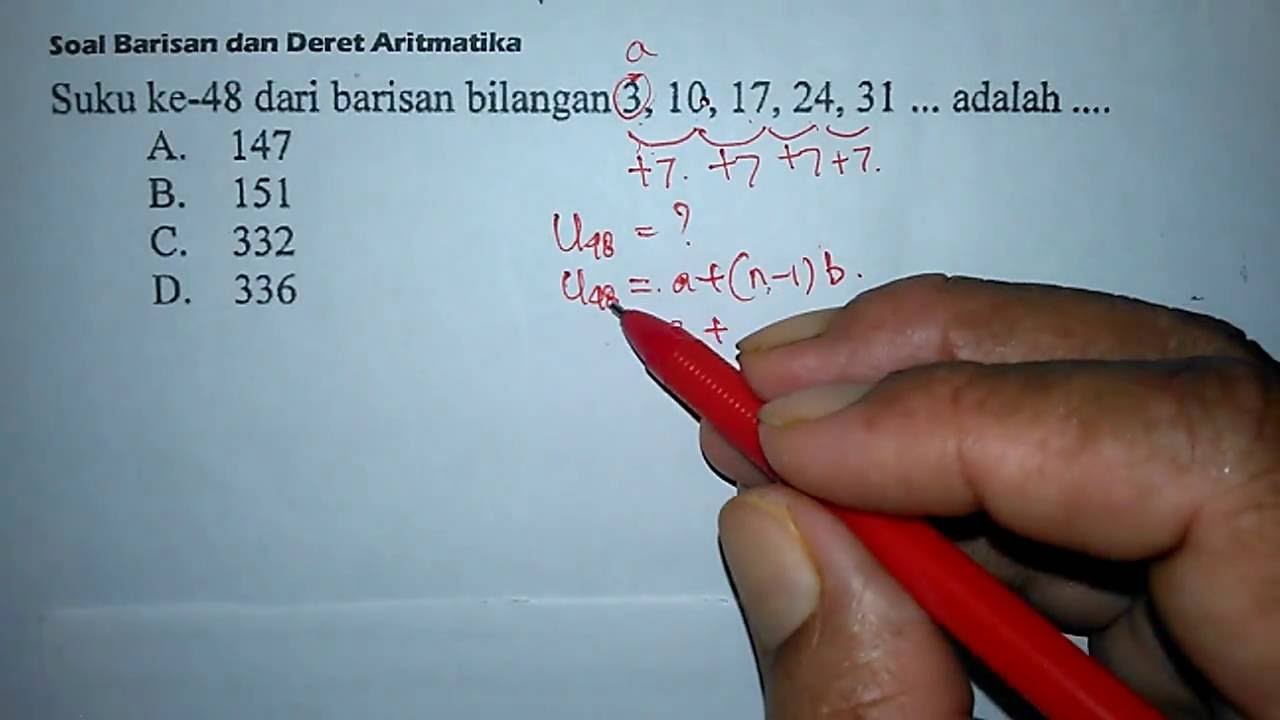 Soal Barisan dan Deret Aritmatika
a
Suku ke-48 dari barisan bilangan 3, 10, 17, 24, 31 ... adalah ....
+7. +7 +7 +7.
A. 147
B. 151
C. 332
D. 336
U48 = ?
U48 = a+(n-1)b.
+